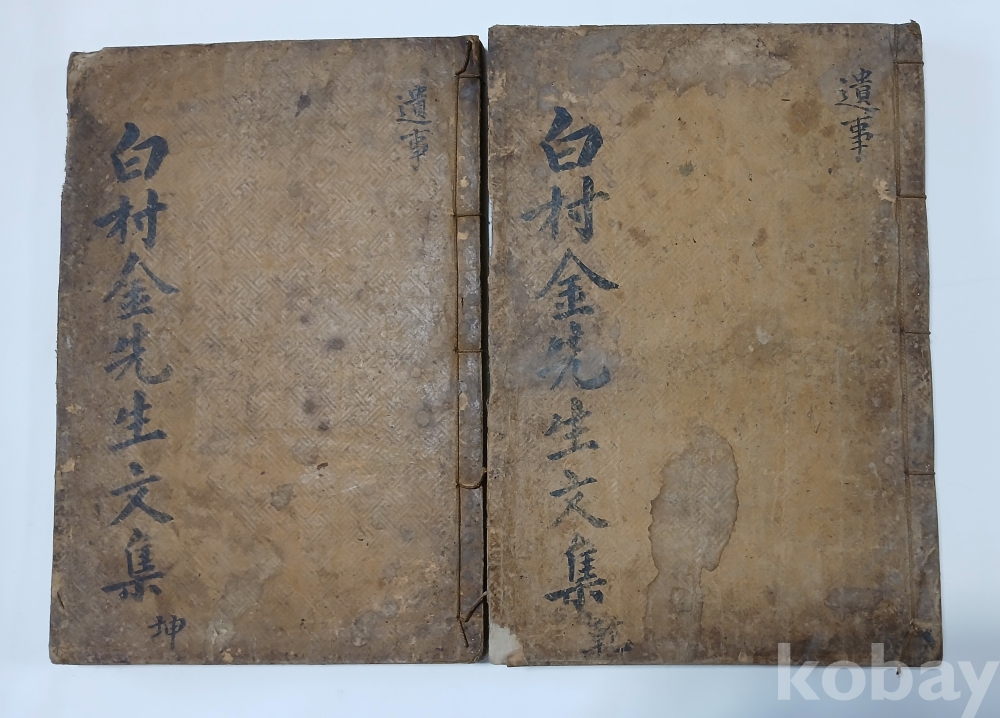 遺事
白村金先生文集
乾
遺事
白村金先生文集
坤
kobay